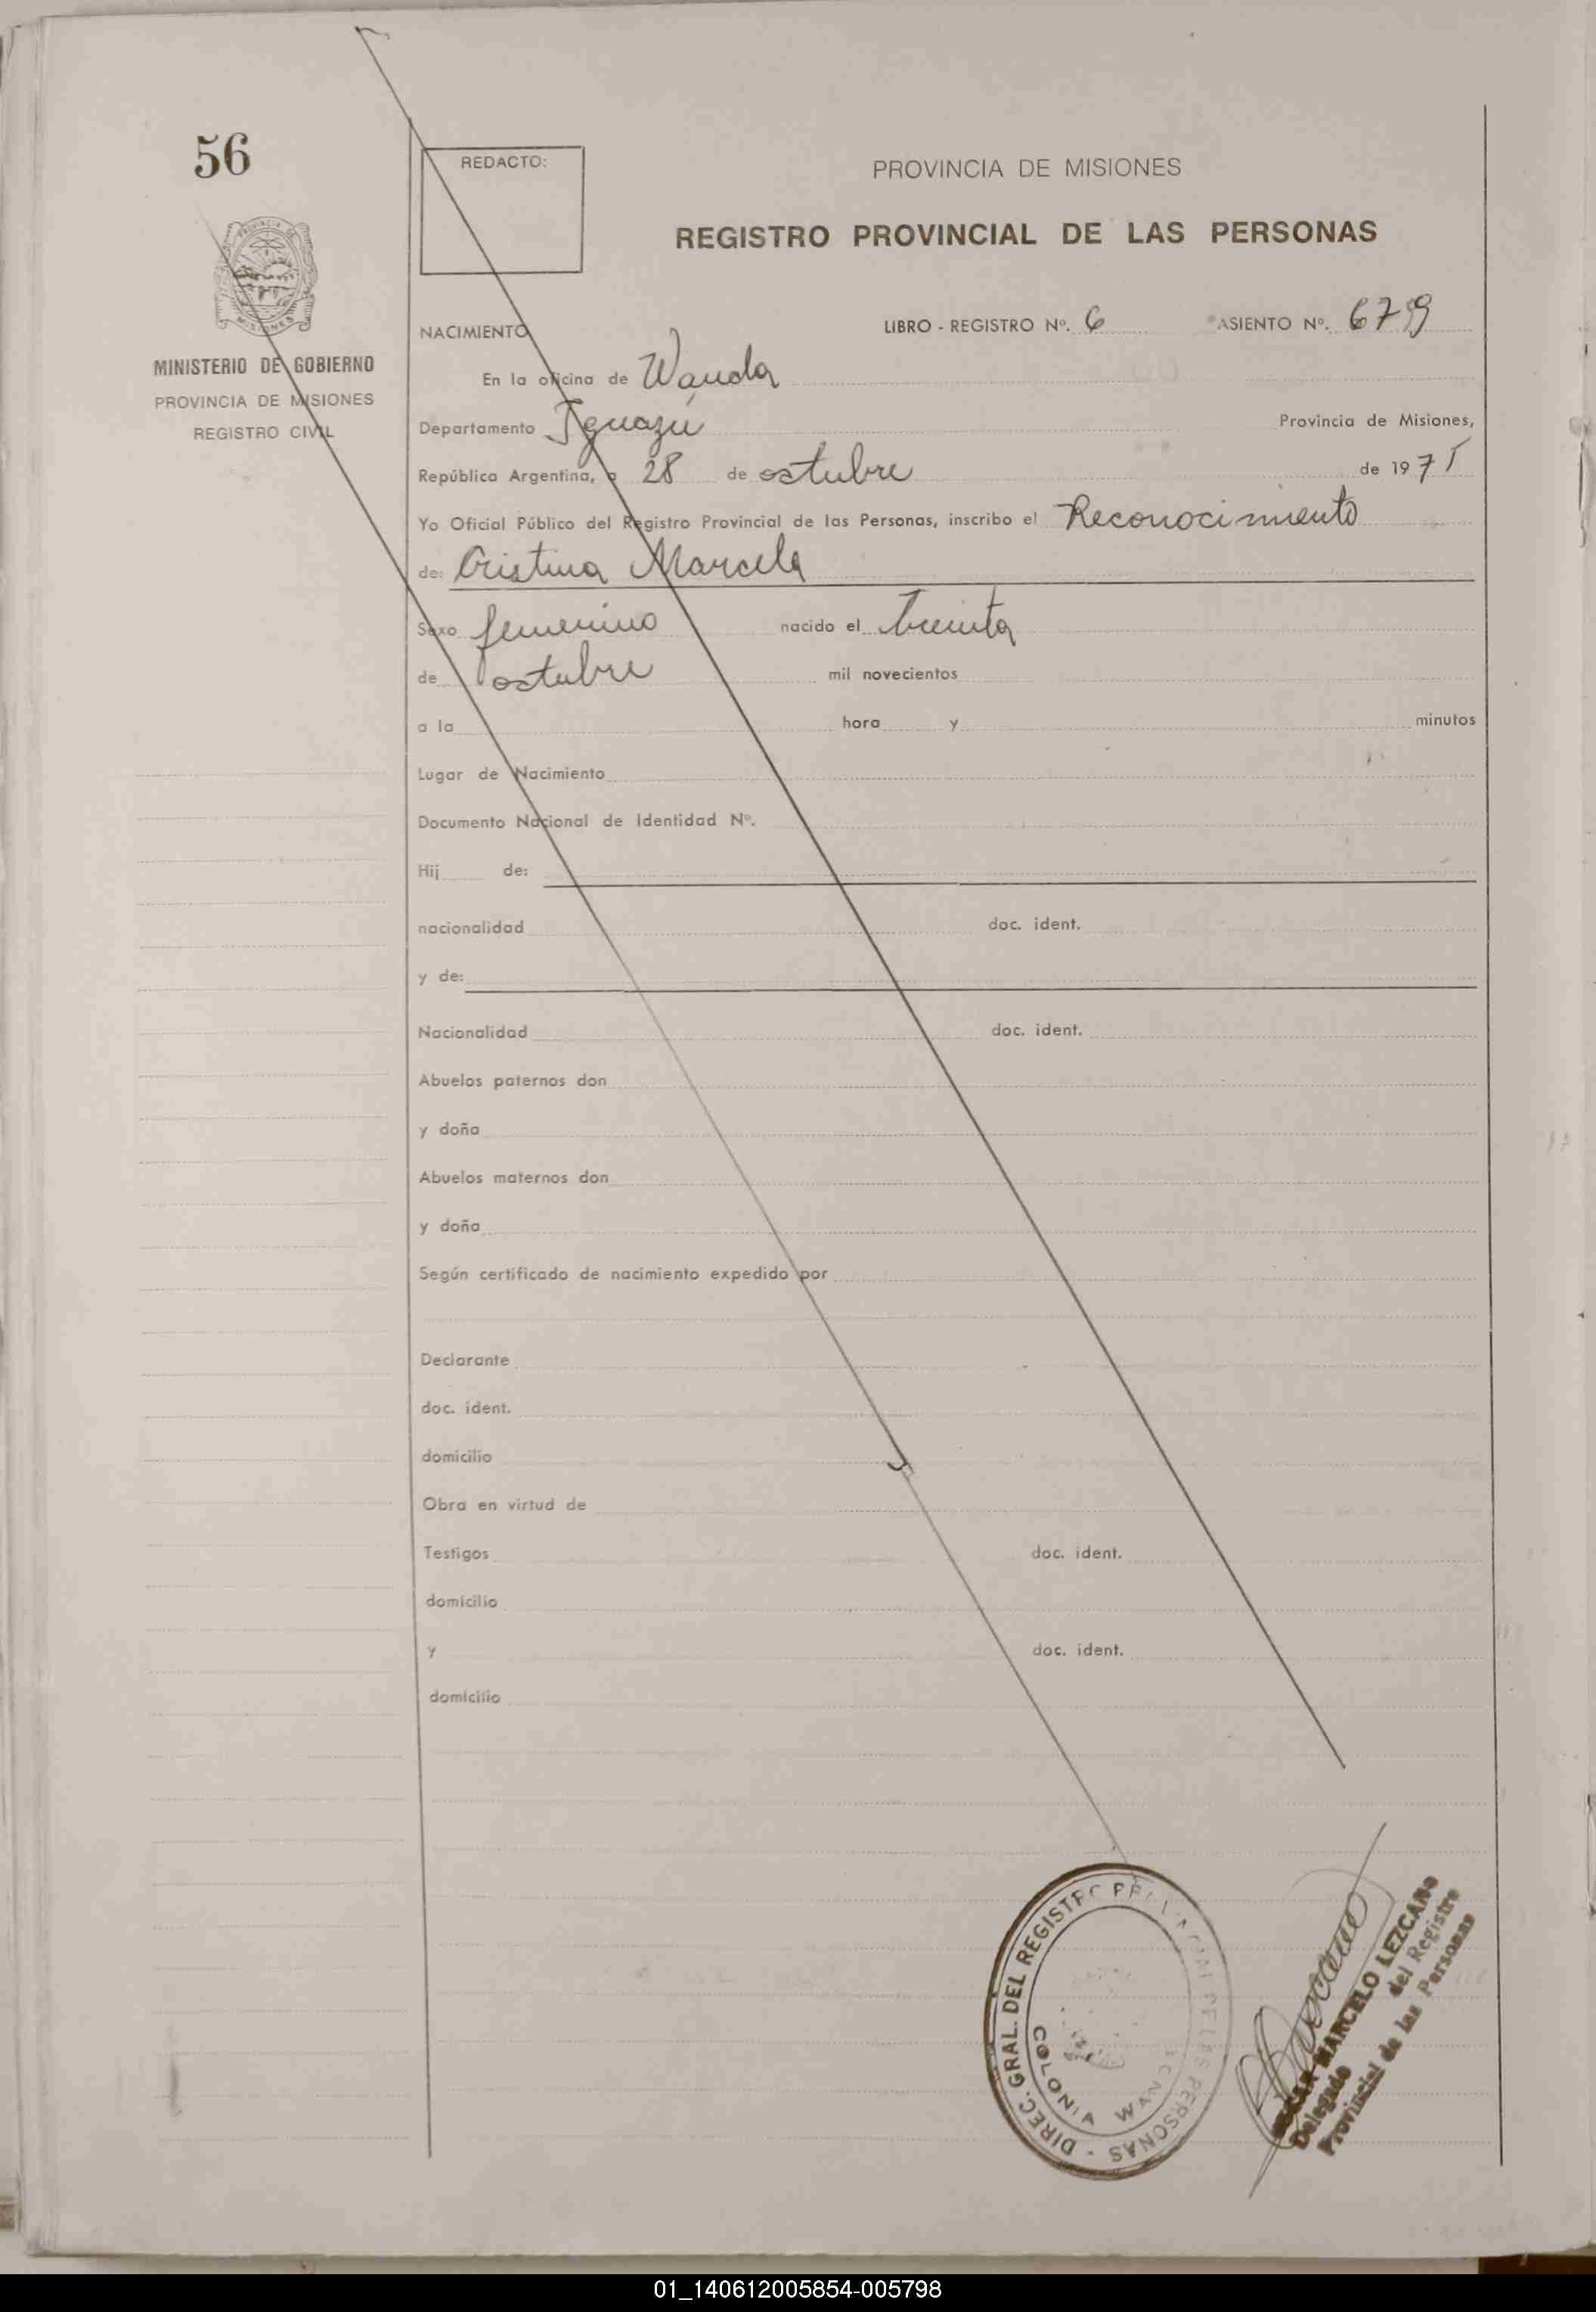 56
REDACTO:
PROVINCIA DE MISIONES
REGISTRO PROVINCIAL DE LAS PERSONAS
MINISTERIO DE GOBIERNO
PROVINCIA DE MISIONES
REGISTRO CIVIL
NACIMIENTO
LIBRO - REGISTRO Nº. 6 ASIENTO Nº.
En la oficina de Wanda
Departamento Iguazú Provincia de Misiones,
República Argentina, a 28 de octubre de 197
Yo Oficial Público del Registro Provincial de las Personas, inscribo el Reconocimiento
de: Cristina Marcela
Sexo femenino nacido el treinta
de octubre mil novecientos
a la hora y minutos
Lugar de Nacimiento
Documento Nacional de Identidad Nº.
Hij de:
nacionalidad doc. ident.
y de:
Nacionalidad doc. ident.
Abuelos paternos don
y doña
Abuelos maternos don
y doña
Según certificado de nacimiento expedido por
Declarante
doc. ident.
domicilio
Obra en virtud de
Testigos doc. ident.
domicilio
y doc. ident.
domicilio
DIREC. GRAL. DEL REGISTRO PROVINCIAL DE LAS PERSONAS -
COLONIA WANDA
MARCELO LEZCANO
Delegado del Registro
Provincial de las Personas
01_140612005854-005798